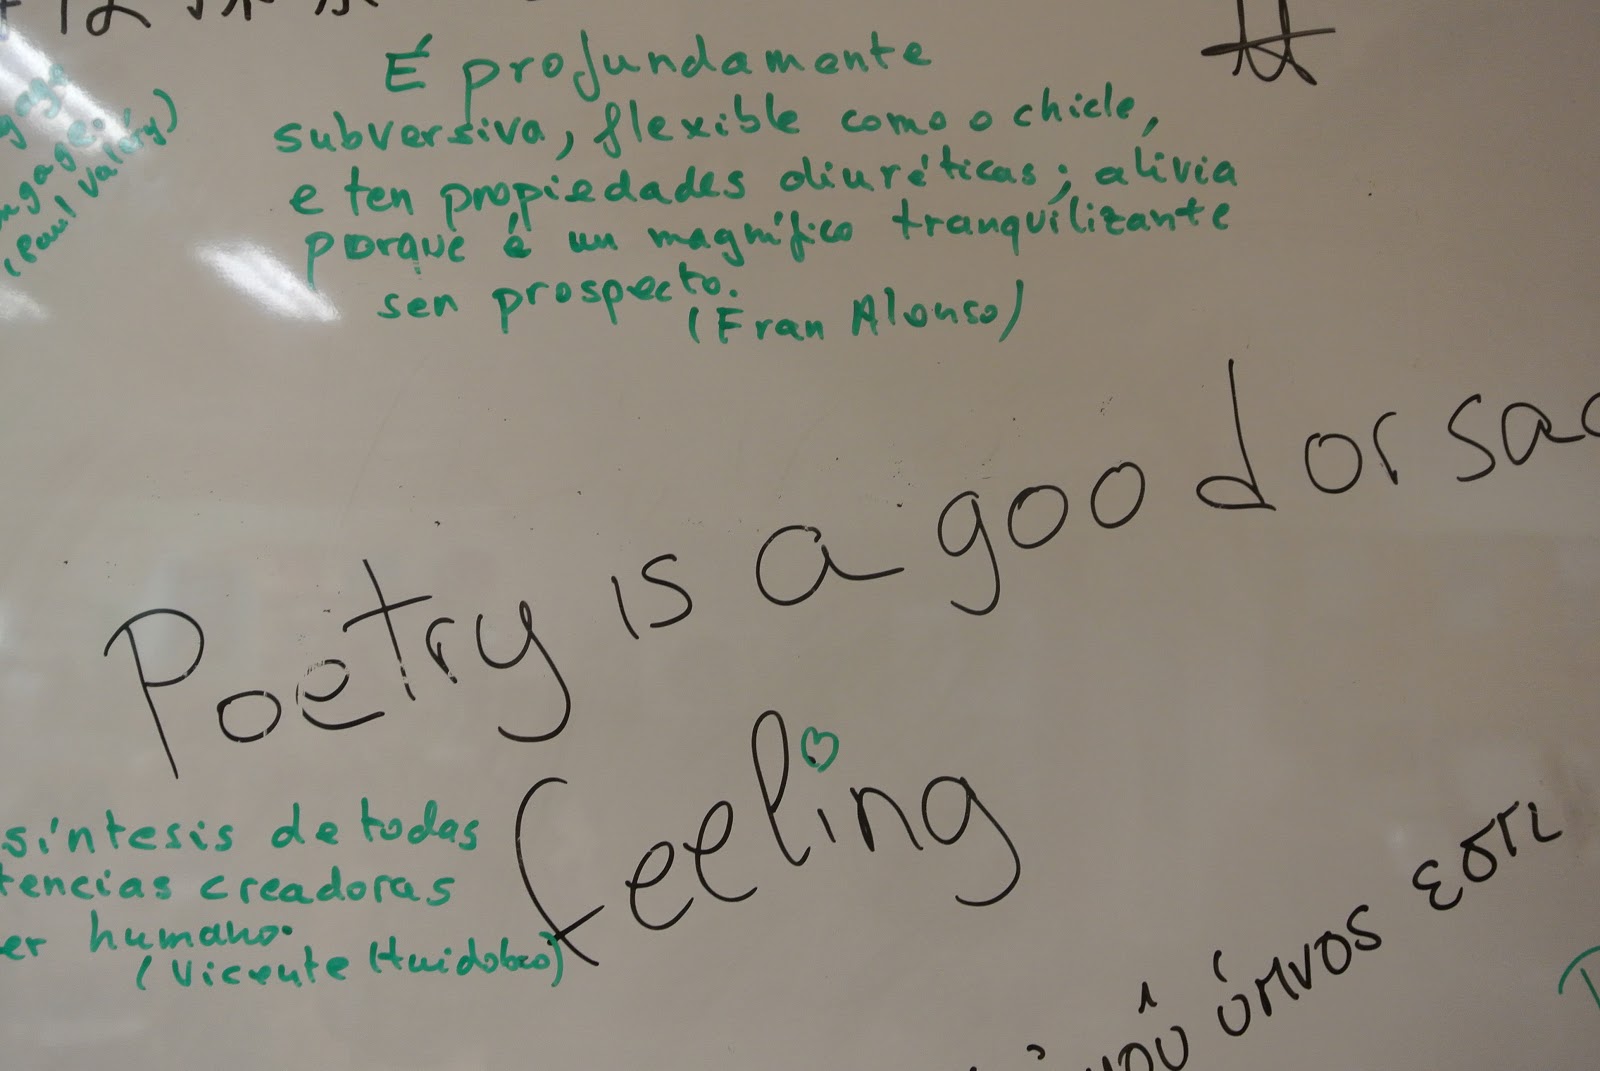 É profundamente
subversiva, flexible como o chicle,
e ten propiedades diuréticas; alivia
porque é un magnífico tranquilizante
sen prospecto.
(Fran Alonso)
(Paul Valéry)
Poetry is a good or sad
feeling
síntesis de todas
tencias creadoras
er humano.
(Vicente Huidobro)
ύπνος εστι